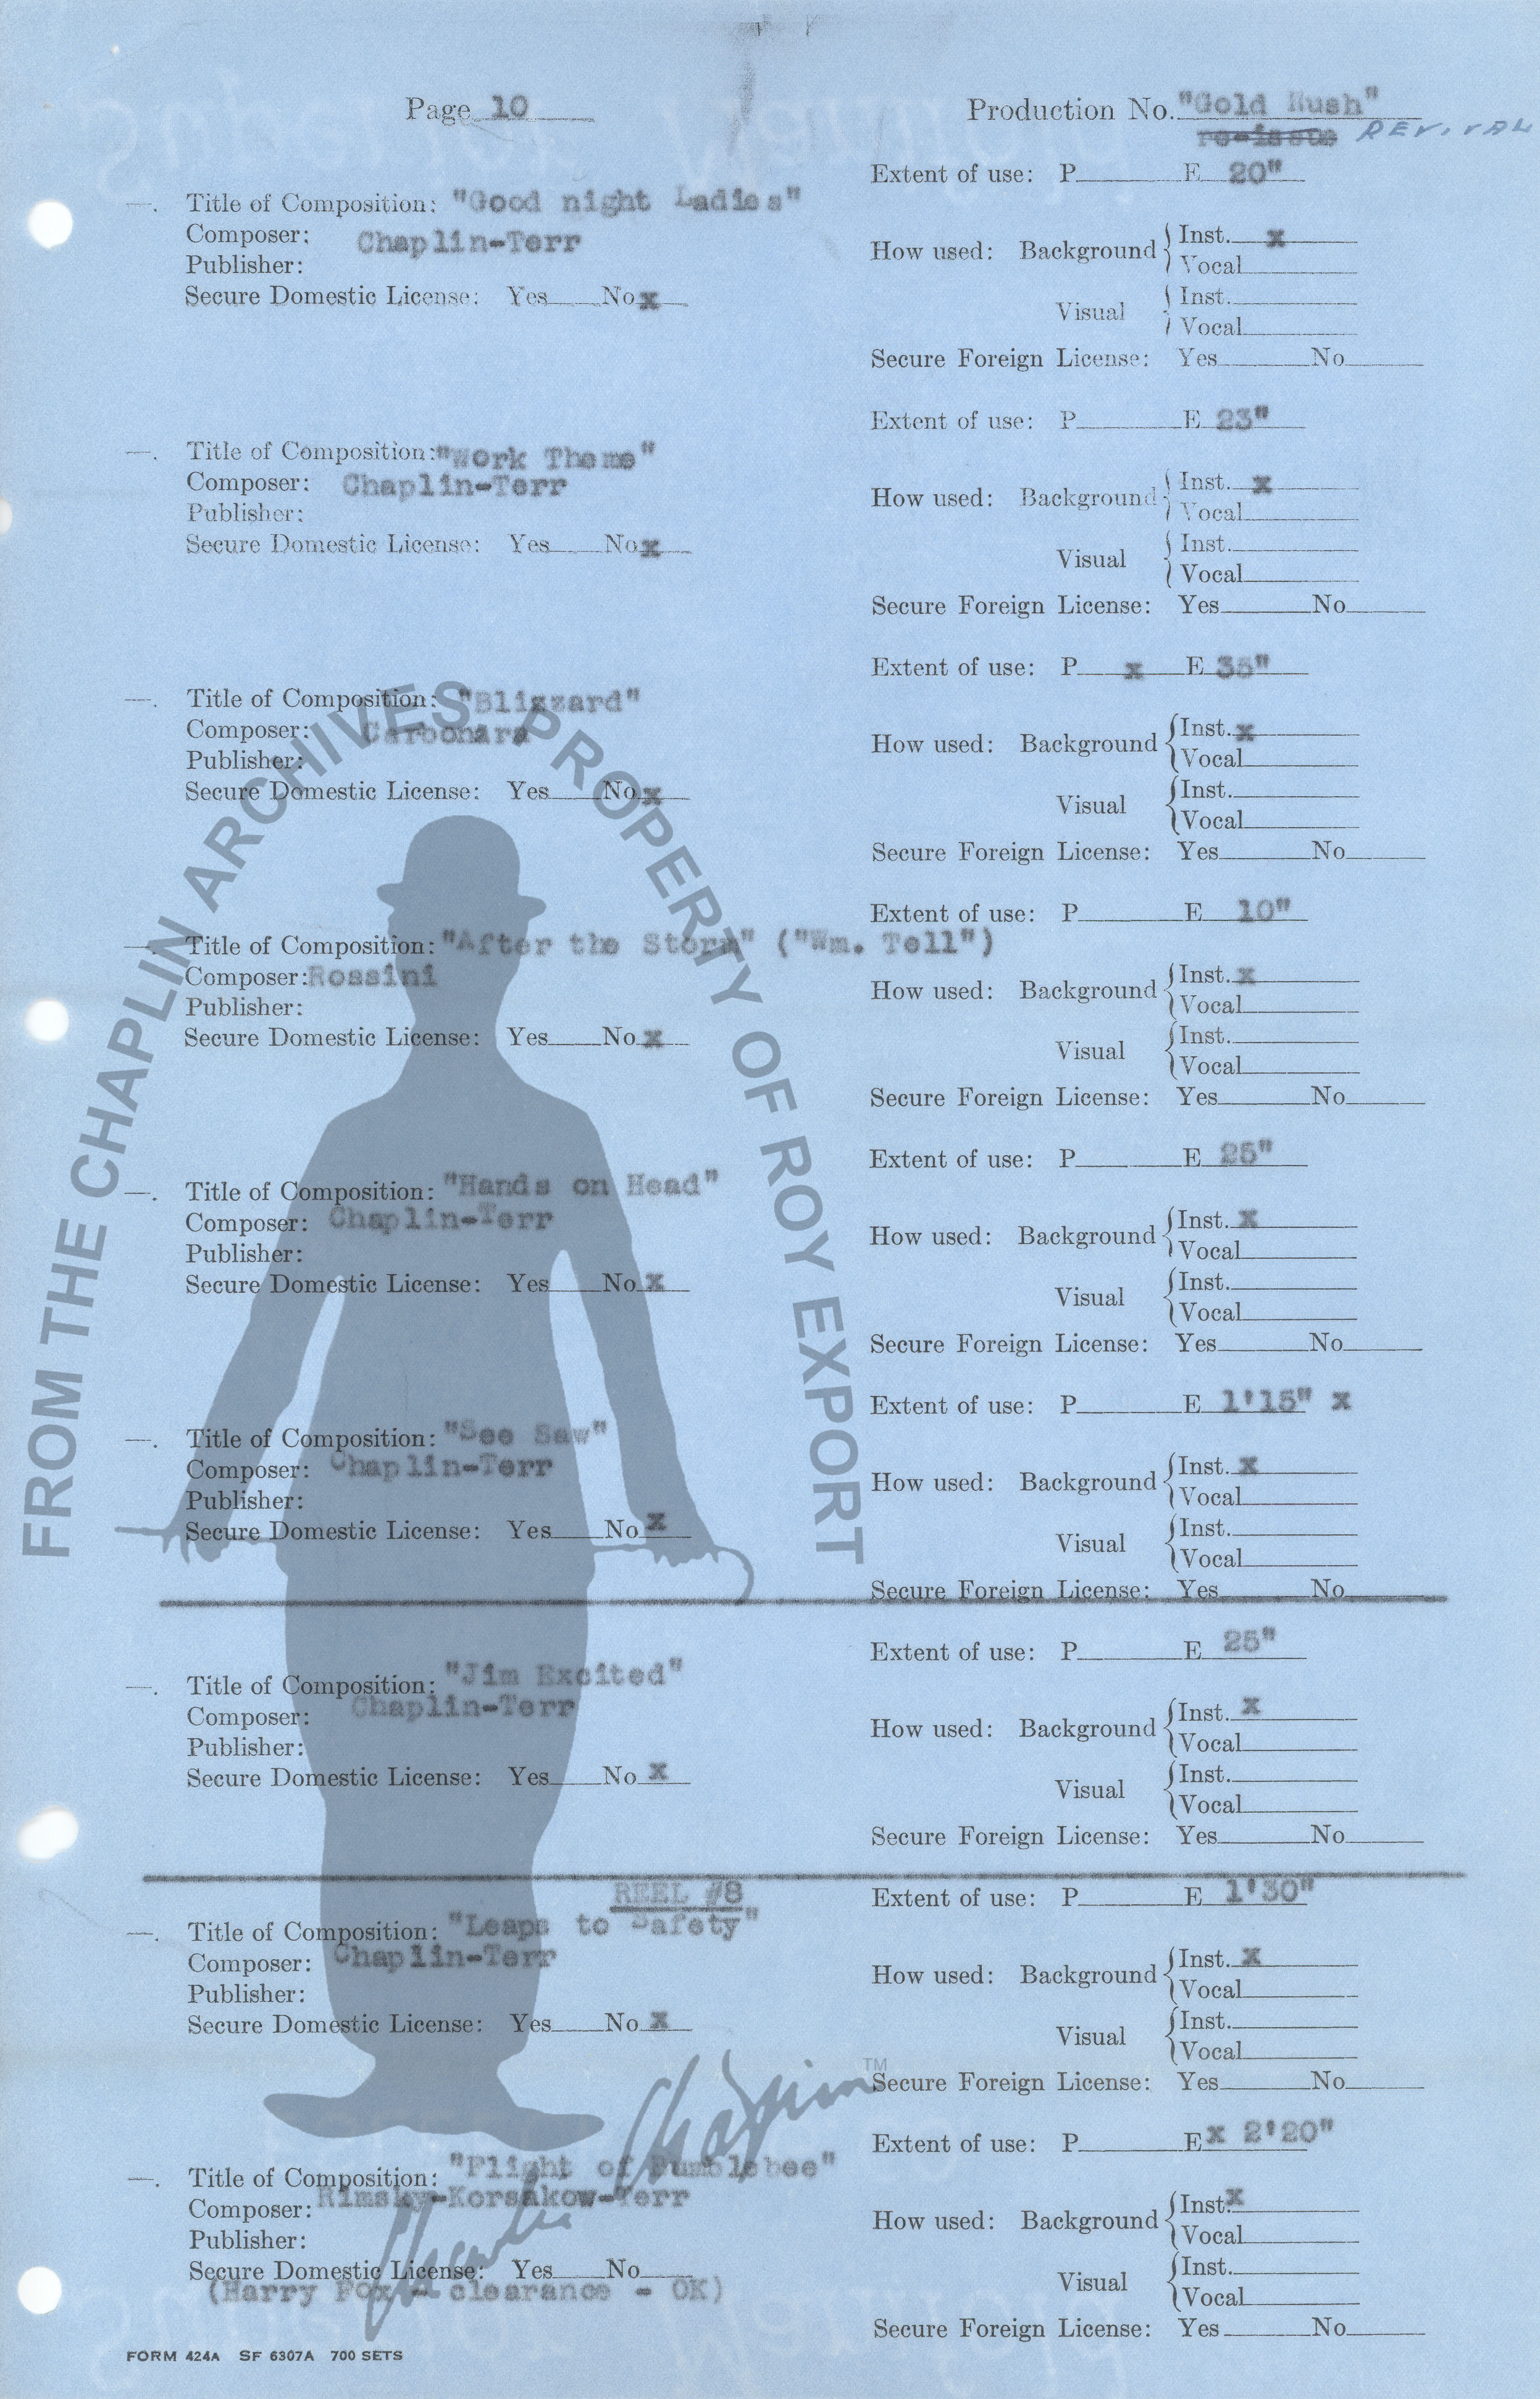 Page 10
Production No. "Gold Rush"
re-issue REVIVAL
Extent of use: P E 20"
—. Title of Composition: "Good night Ladies"
Composer: Chaplin-Terr
Publisher:
Secure Domestic License: Yes No x
How used: Background { Inst. x
Vocal
Visual { Inst.
Vocal
Secure Foreign License: Yes No
Extent of use: P E 23"
—. Title of Composition: "Work Theme"
Composer: Chaplin-Terr
Publisher:
Secure Domestic License: Yes No x
How used: Background { Inst. x
Vocal
Visual { Inst.
Vocal
Secure Foreign License: Yes No
Extent of use: P x E 35"
—. Title of Composition: "Blizzard"
Composer: Carbonara
Publisher:
Secure Domestic License: Yes No x
How used: Background { Inst. x
Vocal
Visual { Inst.
Vocal
Secure Foreign License: Yes No
Extent of use: P E 10"
—. Title of Composition: "After the Storm" ("Wm. Tell")
Composer: Rossini
Publisher:
Secure Domestic License: Yes No x
How used: Background { Inst. x
Vocal
Visual { Inst.
Vocal
Secure Foreign License: Yes No
Extent of use: P E 25"
—. Title of Composition: "Hands on Head"
Composer: Chaplin-Terr
Publisher:
Secure Domestic License: Yes No x
How used: Background { Inst. x
Vocal
Visual { Inst.
Vocal
Secure Foreign License: Yes No
Extent of use: P E 1'15" x
—. Title of Composition: "See Saw"
Composer: Chaplin-Terr
Publisher:
Secure Domestic License: Yes No x
How used: Background { Inst. x
Vocal
Visual { Inst.
Vocal
Secure Foreign License: Yes No
Extent of use: P E 25"
—. Title of Composition: "Jim Excited"
Composer: Chaplin-Terr
Publisher:
Secure Domestic License: Yes No x
How used: Background { Inst. x
Vocal
Visual { Inst.
Vocal
Secure Foreign License: Yes No
REEL #8
Extent of use: P E 1'30"
—. Title of Composition: "Leaps to Safety"
Composer: Chaplin-Terr
Publisher:
Secure Domestic License: Yes No x
How used: Background { Inst. x
Vocal
Visual { Inst.
Vocal
Secure Foreign License: Yes No
Extent of use: P E x 2'20"
—. Title of Composition: "Flight of Bumblebee"
Composer: Rimsky-Korsakow-Terr
Publisher:
Secure Domestic License: Yes No
(Harry Fox - clearance - OK)
How used: Background { Inst. x
Vocal
Visual { Inst.
Vocal
Secure Foreign License: Yes No
FORM 424A SF 6307A 700 SETS
FROM THE CHAPLIN ARCHIVES PROPERTY OF ROY EXPORT
Charlie Chaplin TM